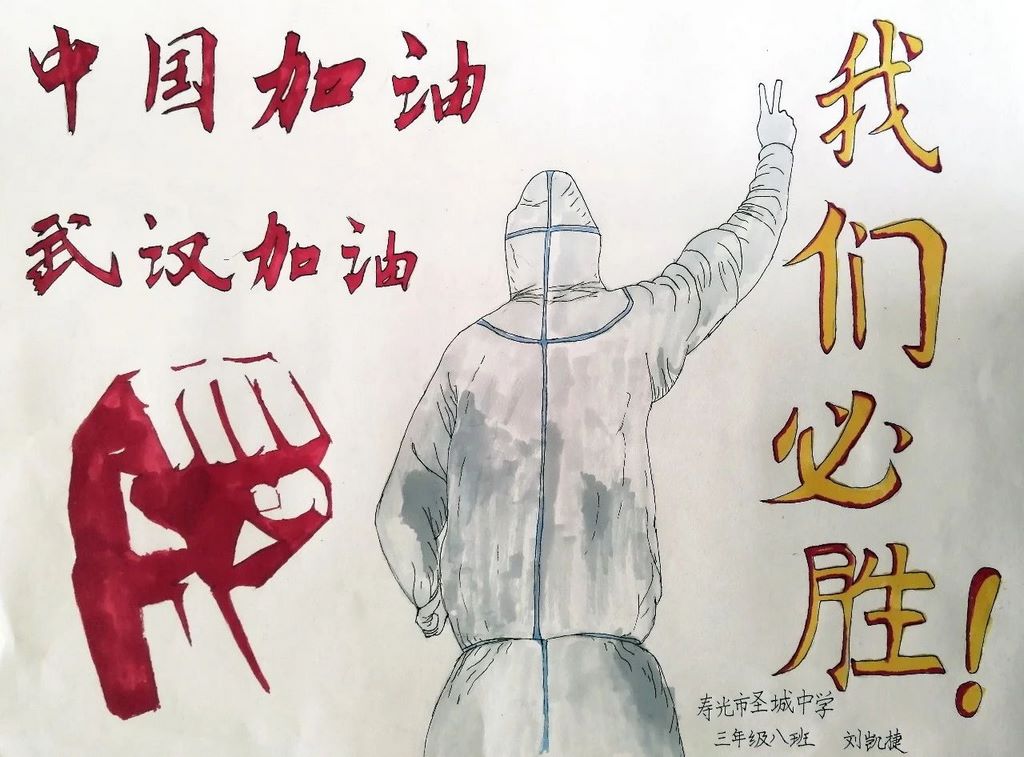 中国加油
武汉加油
我们必胜!
寿光市圣城中学
三年级八班 刘凯捷